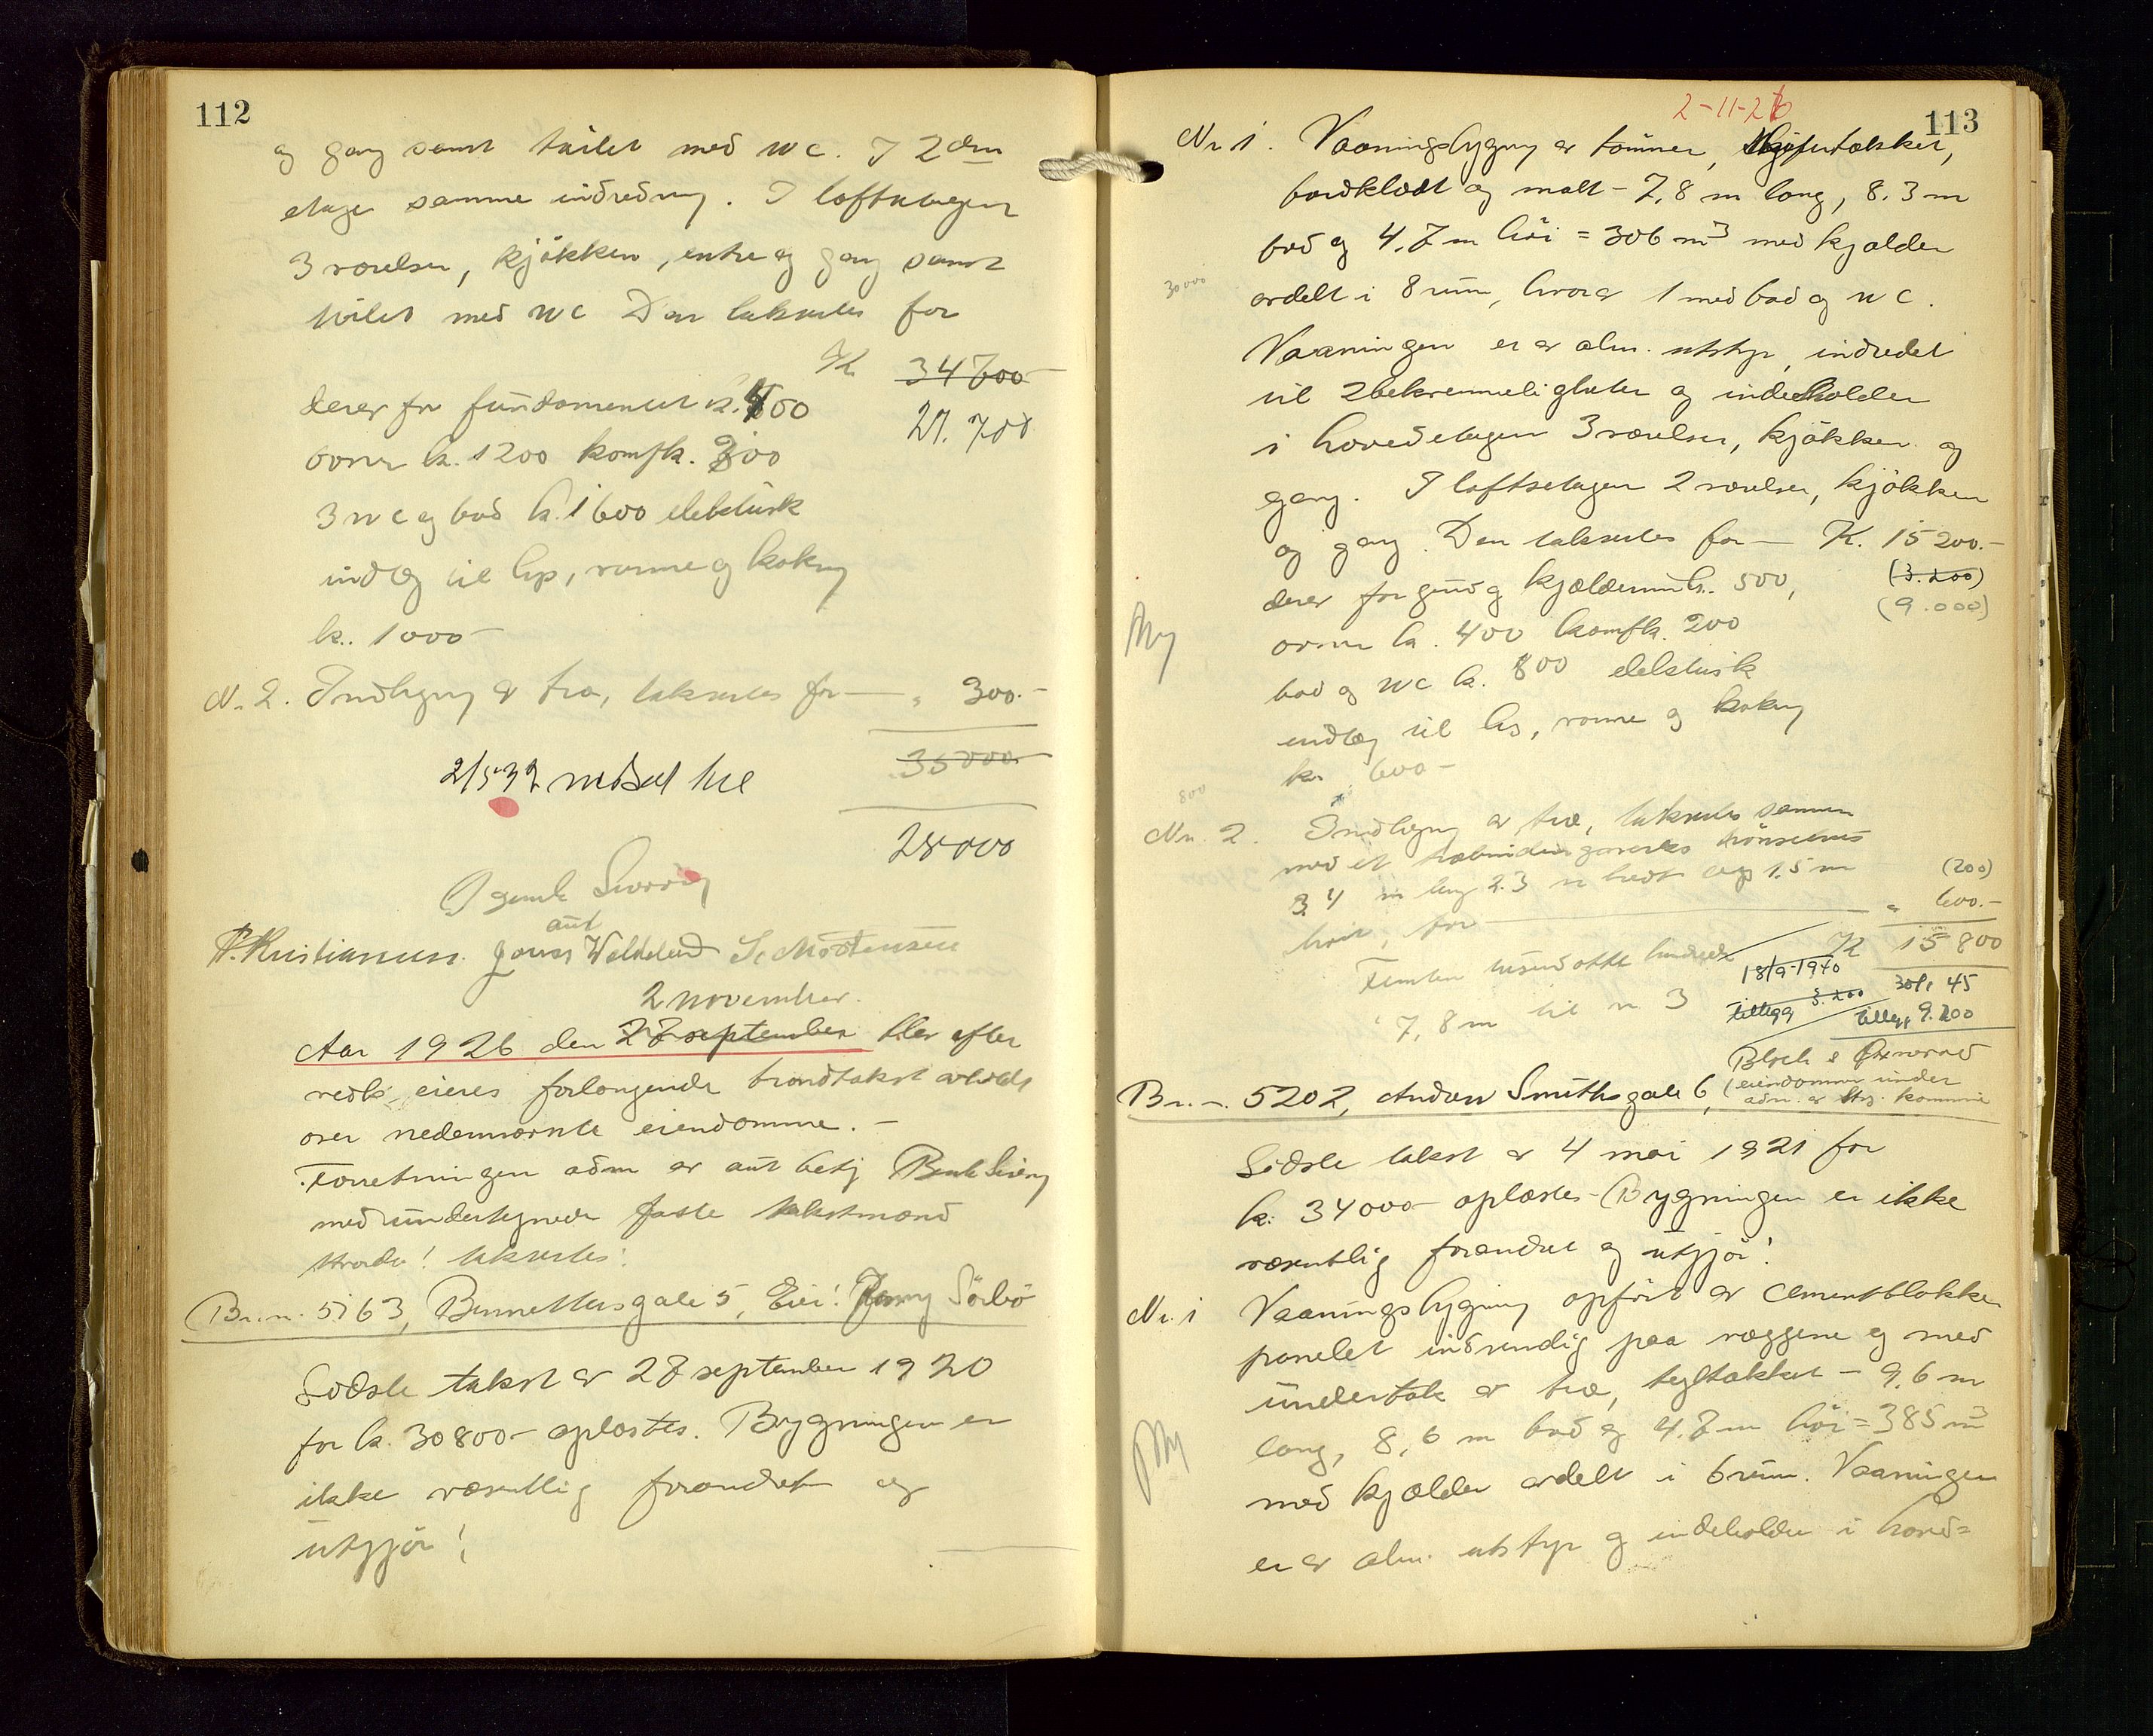 112
og gang samt toilet med wc. I 2den
etage samme indredning. I loftsetagen
3 værelser, kjökken, entre og gang samt
toilet med wc Den takseres for
Kr 34700-
derav for fundamentet k. 400
27.700
ovner k. 1200 komfk. 300
3 wc og bad k. 1600 elektrisk
indlæg til lys, varme og kokning
k. 1000-
Nr. 2. Indhegning av træ, takseres for — " 300.-
35000-
2/5-32 nedsat til
28000
Bernh Sivering
aut
P. Kristiansen. Jonas Weldeland S. Mortensen
2 november.
Aar 1926 den 28 september blev efter
vedk. eieres forlangende brandtakst avholdt
over nedennævnte eiendomme. -
Forretningen adm av aut betj Bernh Sivering
med undertegnede faste takstmænd
Hvorda! takseres:
Br.nr. 5163, Bennettersgate 5, Eier: Jenny Sörbö
Sidste takst av 28 september 1920
for k. 30800- oplæstes. Bygningen er
ikke væsentlig forandret og
utgjör!
2-11-26
113
Nr 1. Vaaningsbygning av tömmer, skifertækket,
bordklædt og malt - 7,8 m lang, 8.3 m
bred og 4.7 m höi = 306 m3 med kjælder
30000
avdelt i 8 rum, hvorav 1 med bad og wc.
Vaaningen er av alm. utstyr, indredet
til 2 bekvemmeligheter og indeholder
i hovedetagen 3 værelser, kjökken og
gang. I loftsetagen 2 værelser, kjökken
og gang. Den takseres for — K. 15200.-
(3.200)
derav for grund og kjældermur k. 500,
(9.000)
ovner k. 400 komfk. 200
bad og wc k. 800 elektrisk
indlæg til lys, varme og kokning
kr. 600-
800
Nr. 2. Indhegning av træ, takseres sammen
med et hönsehus
3.4 m lang 2.3 m bredt og 1.5 m
(200)
höit, for — " 600.-
Femten tusen otte hundrede K 15800
18/9-1940
tillegg 3.200
30% 45
tillegg 9.200
7,8 m til nr 3
Br.nr. 5202, Anders Smithsgate 6, (
eiendommen under
adm. av Stvg. kommune
Sidste takst av 4 mai 1921 for
k. 34000- oplæstes - Bygningen er ikke
væsentlig forandret og utgjör!
Nr. 1 Vaaningsbygning opfört av cementblokker
panelet indvendig paa væggene og med
undertak av træ, tegltækket - 9,6 m
lang, 8,6 m bred og 4.7 m höi = 385 m3
med kjælder avdelt i 6 rum. Vaaningen
er av alm. utstyr og indeholder i hoved=